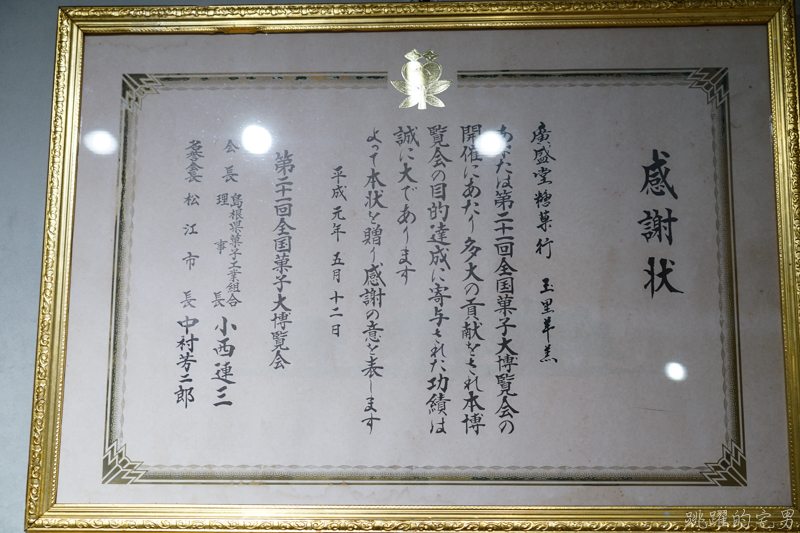 感謝状
廣盛堂糖菓行 玉里羊羹
あなたは第二十一回全国菓子大博覧会の
開催にあたり多大の貢献をされ本博
覧会の目的達成に寄与された功績は
誠に大であります
よって本状を贈り感謝の意を表します
平成元年 五月 十二日
第二十一回全国菓子大博覧会
会長 島根県菓子工業組合 理事長 小西連三
名誉会長 松江市長 中村芳二郎
跳躍的宅男